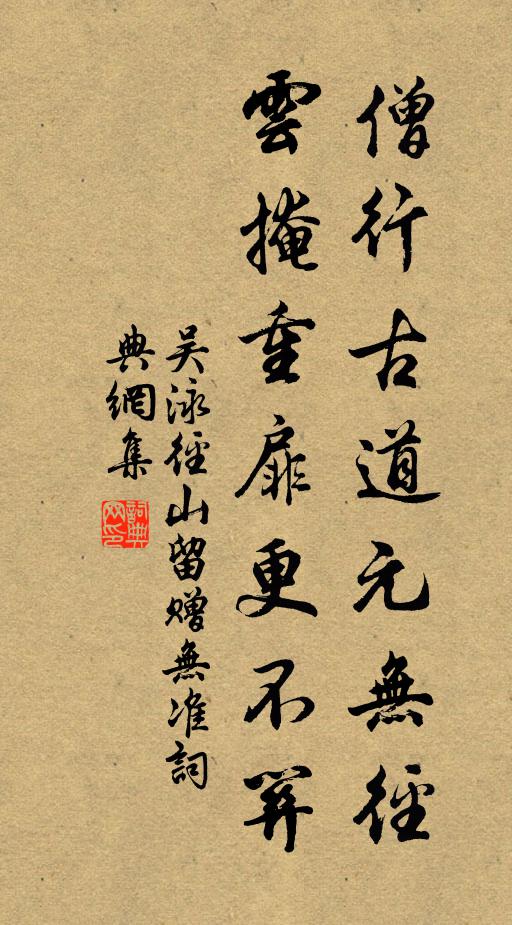 僧行古道元無徑
雲掩重扉更不關
吴泳徑山留贈無准詞
典網集
詞典網印